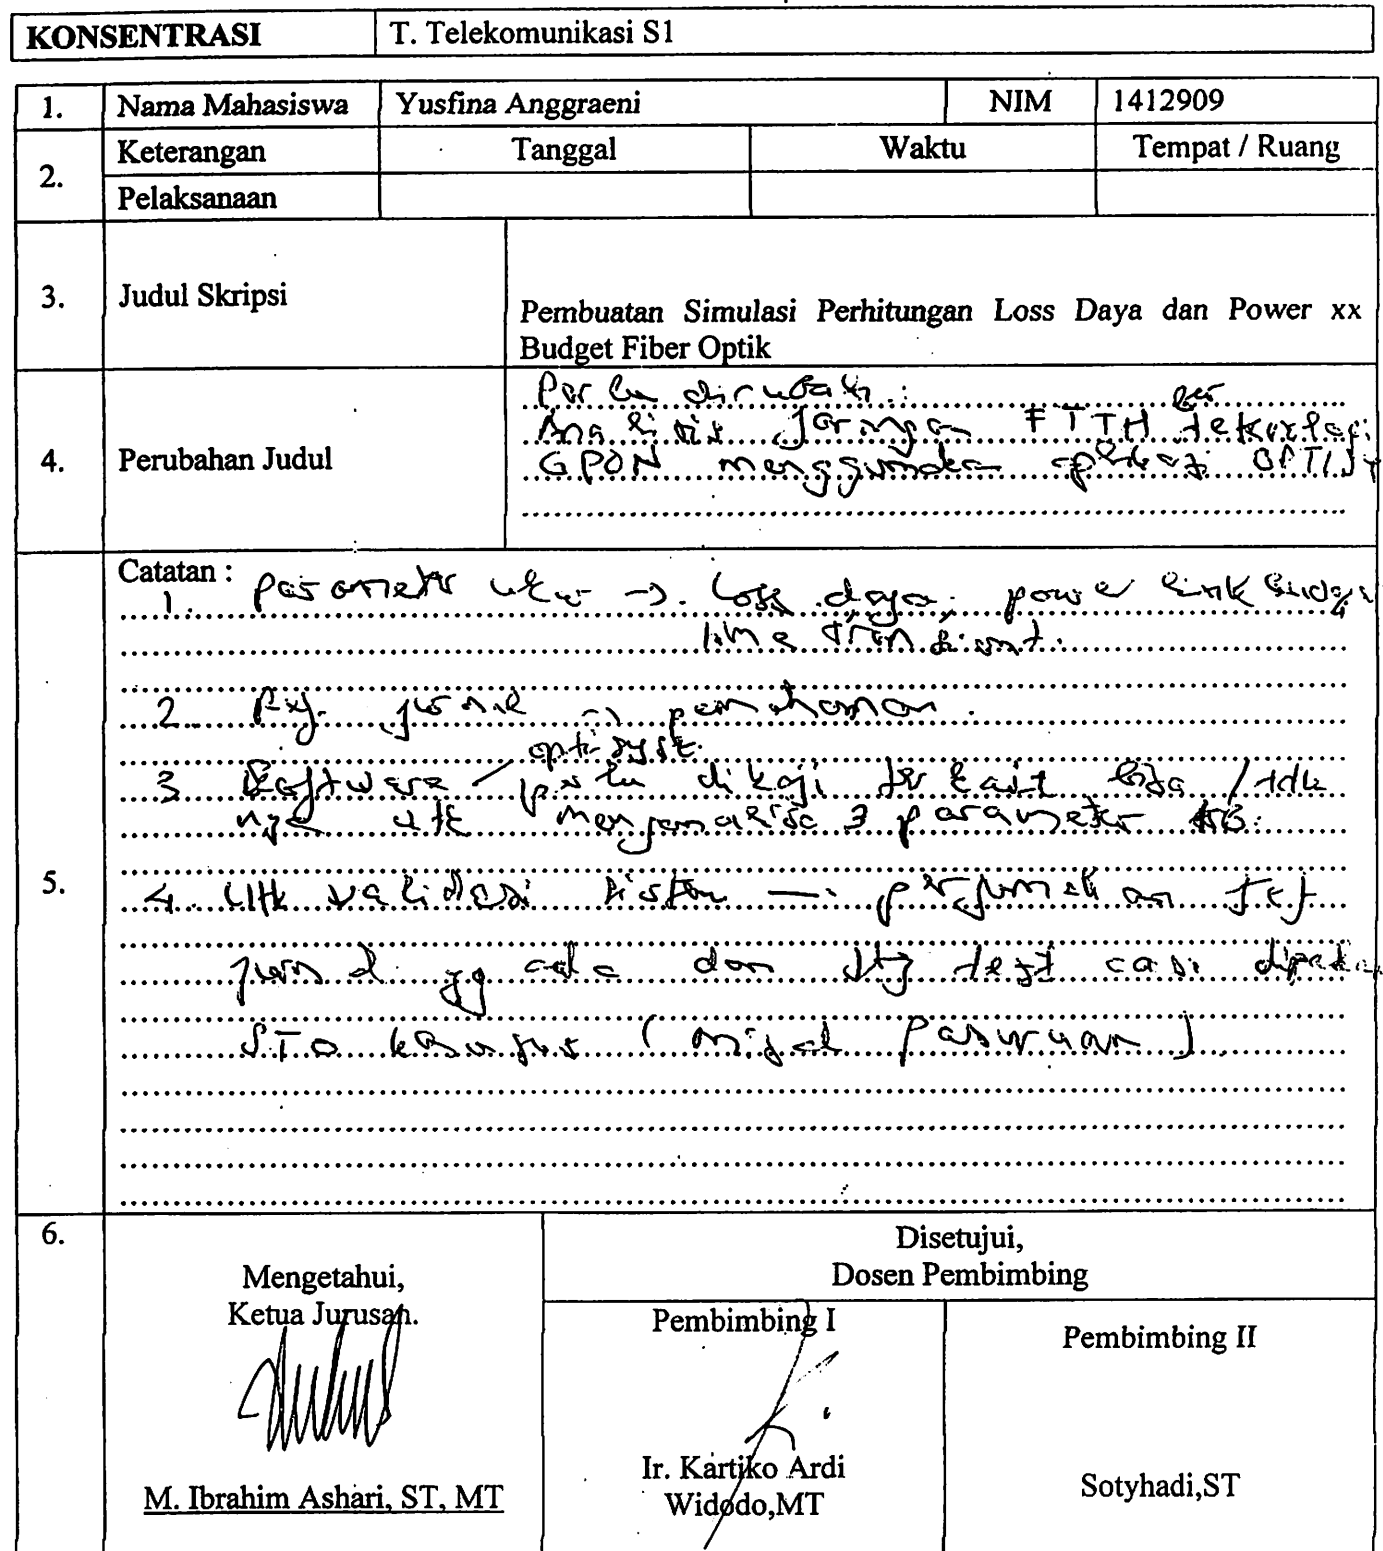 KONSENTRASI T. Telekomunikasi S1
1. Nama Mahasiswa Yusfina Anggraeni NIM 1412909
2. Keterangan Tanggal Waktu Tempat / Ruang
Pelaksanaan
3. Judul Skripsi
Pembuatan Simulasi Perhitungan Loss Daya dan Power xx
Budget Fiber Optik
4. Perubahan Judul
Perlu dirubah :
Analisis Jaringan FTTH
GPON menggunakan aplikasi
5. Catatan :
1. parameter ukur -> Loss daya, power link
2. jurnal -> pemahaman.
optisyst.
3 Software perlu dikaji terkait bisa / tdk
nya utk menganalisa 3 parameter
4. Utk validasi sistem
jurnal yg ada dan test case
STO (misal Pasuruan)
6. Mengetahui,
Ketua Jurusan.
M. Ibrahim Ashari, ST, MT
Disetujui,
Dosen Pembimbing
Pembimbing I
Ir. Kartiko Ardi
Widodo,MT
Pembimbing II
Sotyhadi,ST